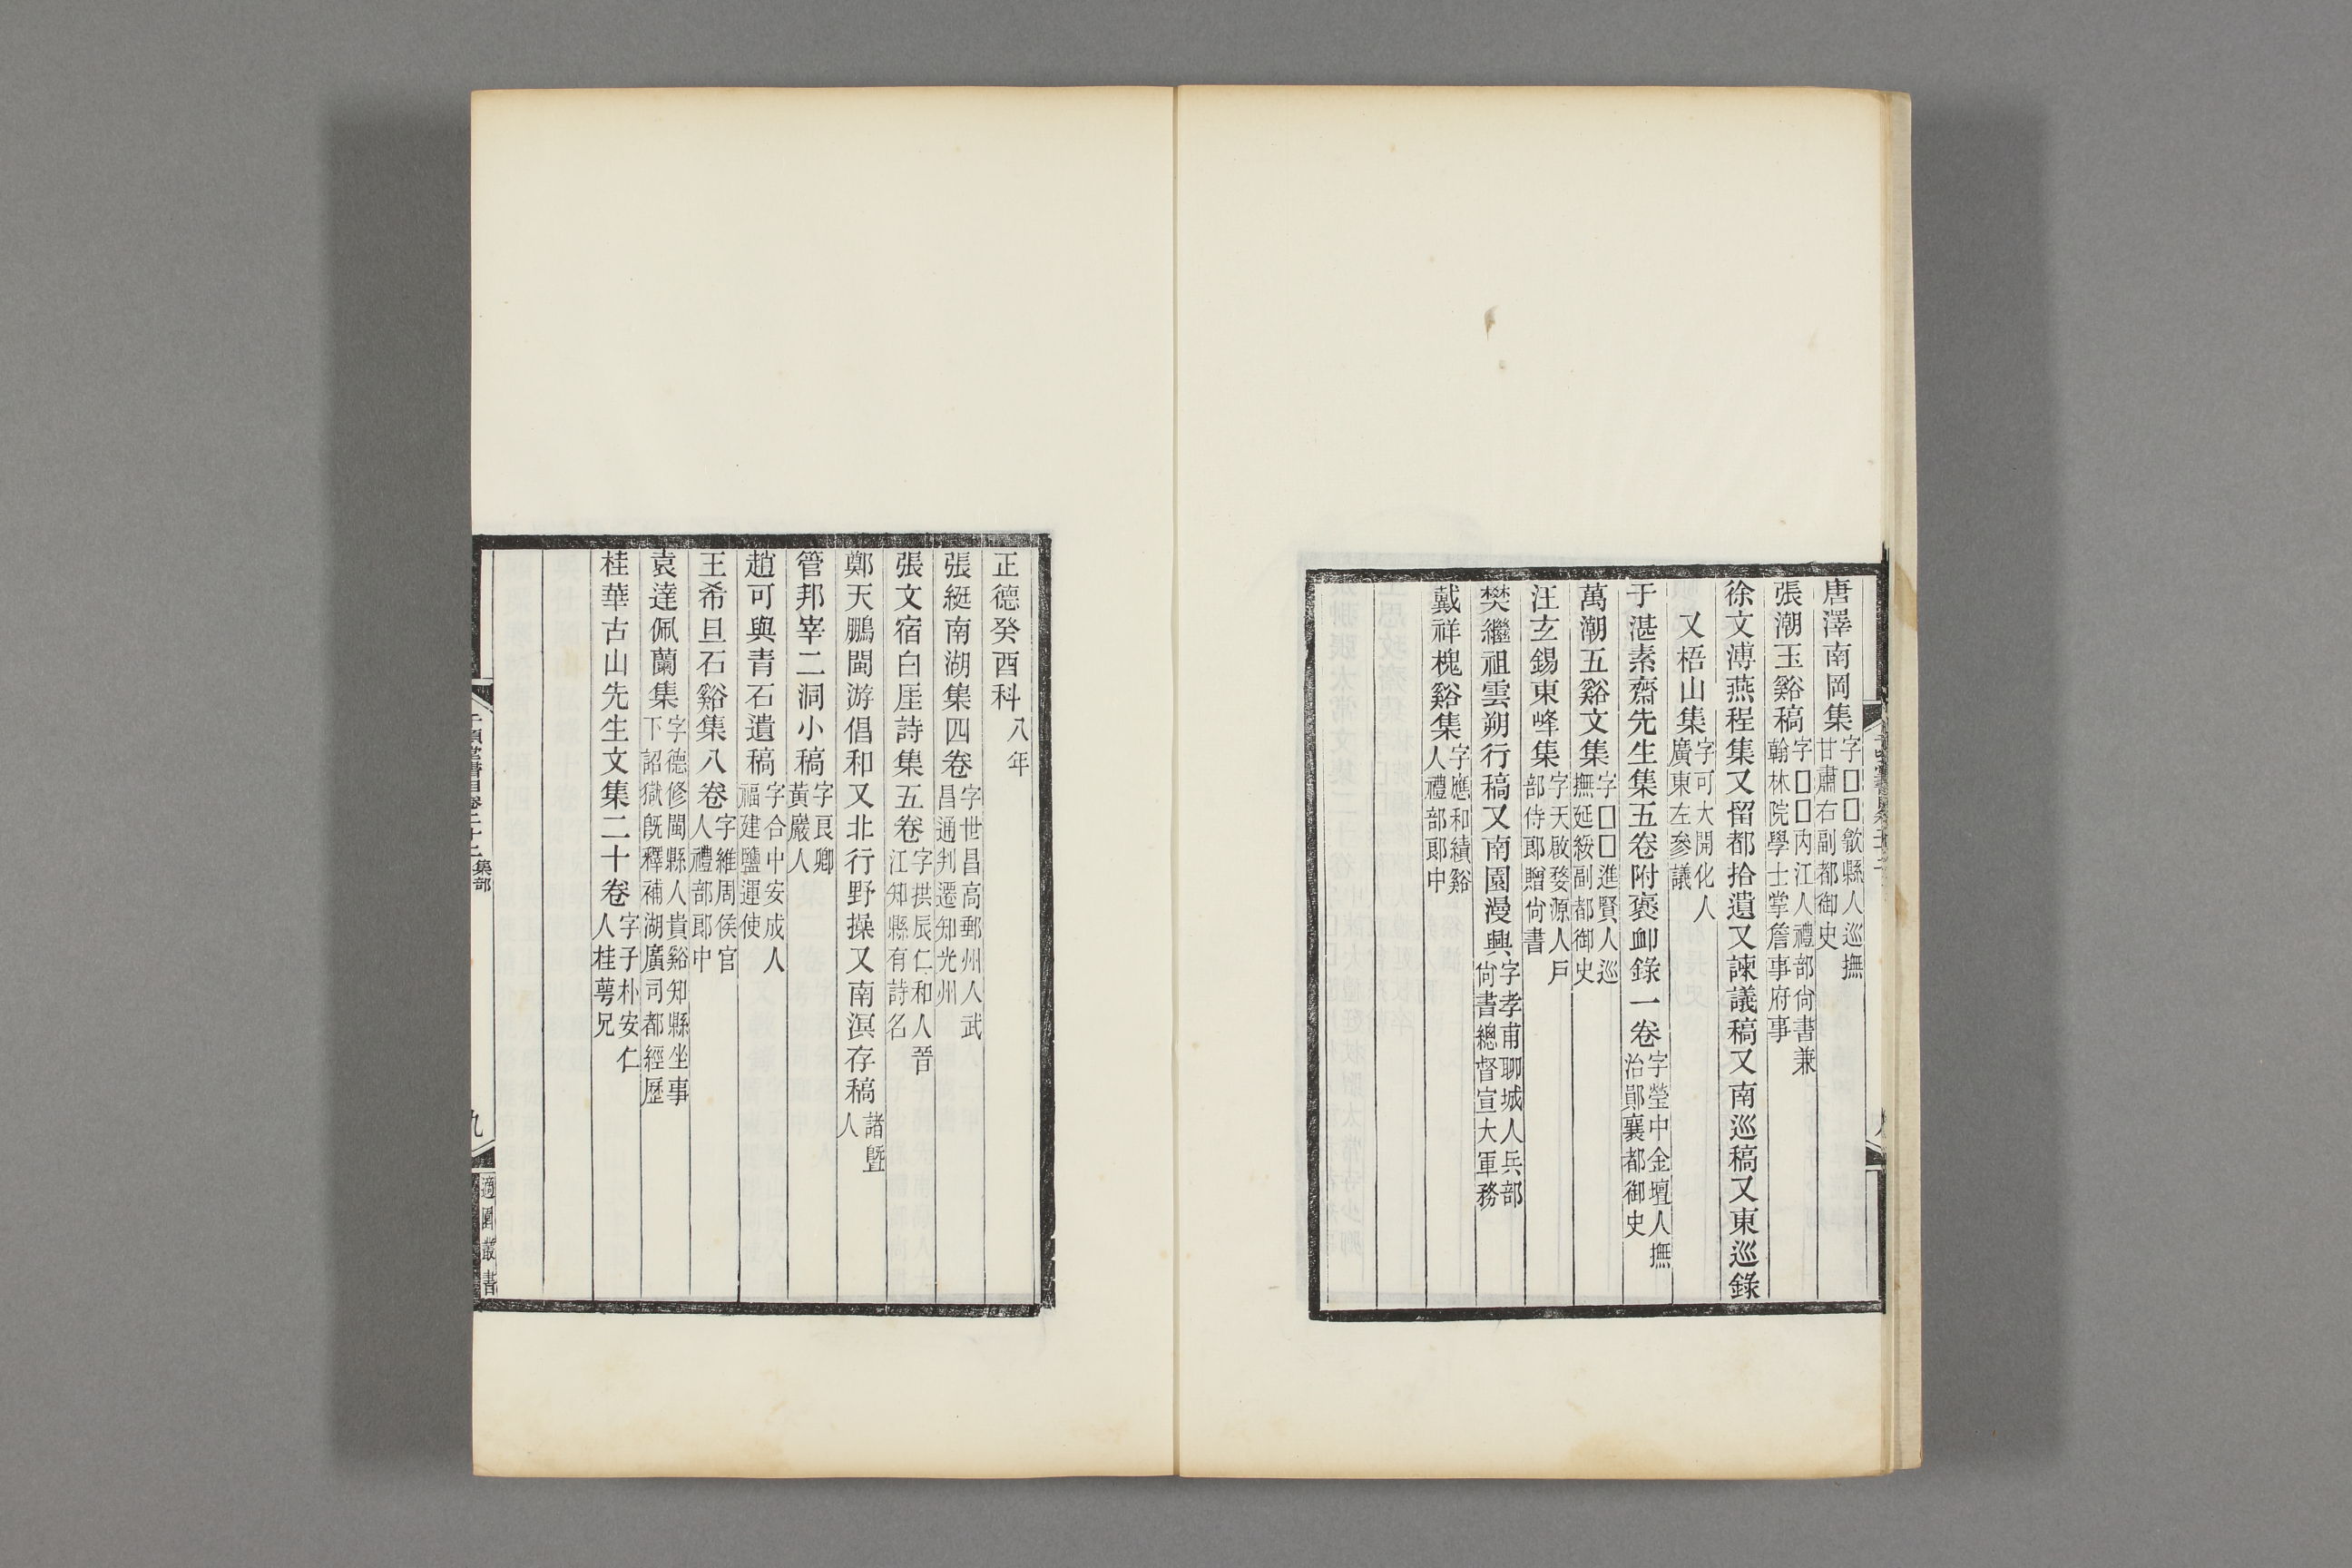 唐澤南岡集字□□歙縣人巡撫甘肅右副都御史
張潮玉谿稿字□□內江人禮部尙書兼翰林院學士掌詹事府事
徐文溥燕程集又留都拾遺又諫議稿又南巡稿又東巡錄
又梧山集字可大開化人廣東左參議
于湛素齋先生集五卷附褒卹錄一卷字瑩中金壇人撫治鄖襄都御史
萬潮五谿文集字□□進賢人巡撫延綏副都御史
汪玄錫東峰集字天啟婺源人戶部侍郎贈尙書
樊繼祖雲朔行稿又南園漫興字孝甫聊城人兵部尙書總督宣大軍務
戴祥槐谿集字應和績谿人禮部郎中
正德癸酉科八年
張綖南湖集四卷字世昌高郵州人武昌通判遷知光州
張文宿白厓詩集五卷字拱辰仁和人晉江知縣有詩名
鄭天鵬閩游倡和又北行野操又南溟存稿諸曁人
管邦宰二洞小稿字艮卿黃巖人
趙可與青石遺稿字合中安成人福建鹽運使
王希旦石谿集八卷字維周侯官人禮部郎中
袁達佩蘭集字德修閩縣人貴谿知縣坐事下詔獄旣釋補湖廣司都經歷
桂華古山先生文集二十卷字子朴安仁人桂萼兄
千頃堂書目卷二十二 集部
九
適園叢書